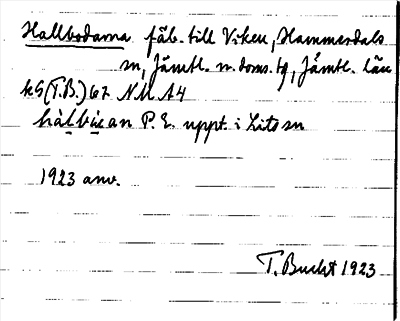 Hallbodarna fäb. till Viken, Hammerdals
sn, Jämtl. n. doms. tg, Jämtl. län
kG (T.B.) 67 NM A4
P. E. uppt. i Lits sn
1923 anv.
T. Bucht 1923